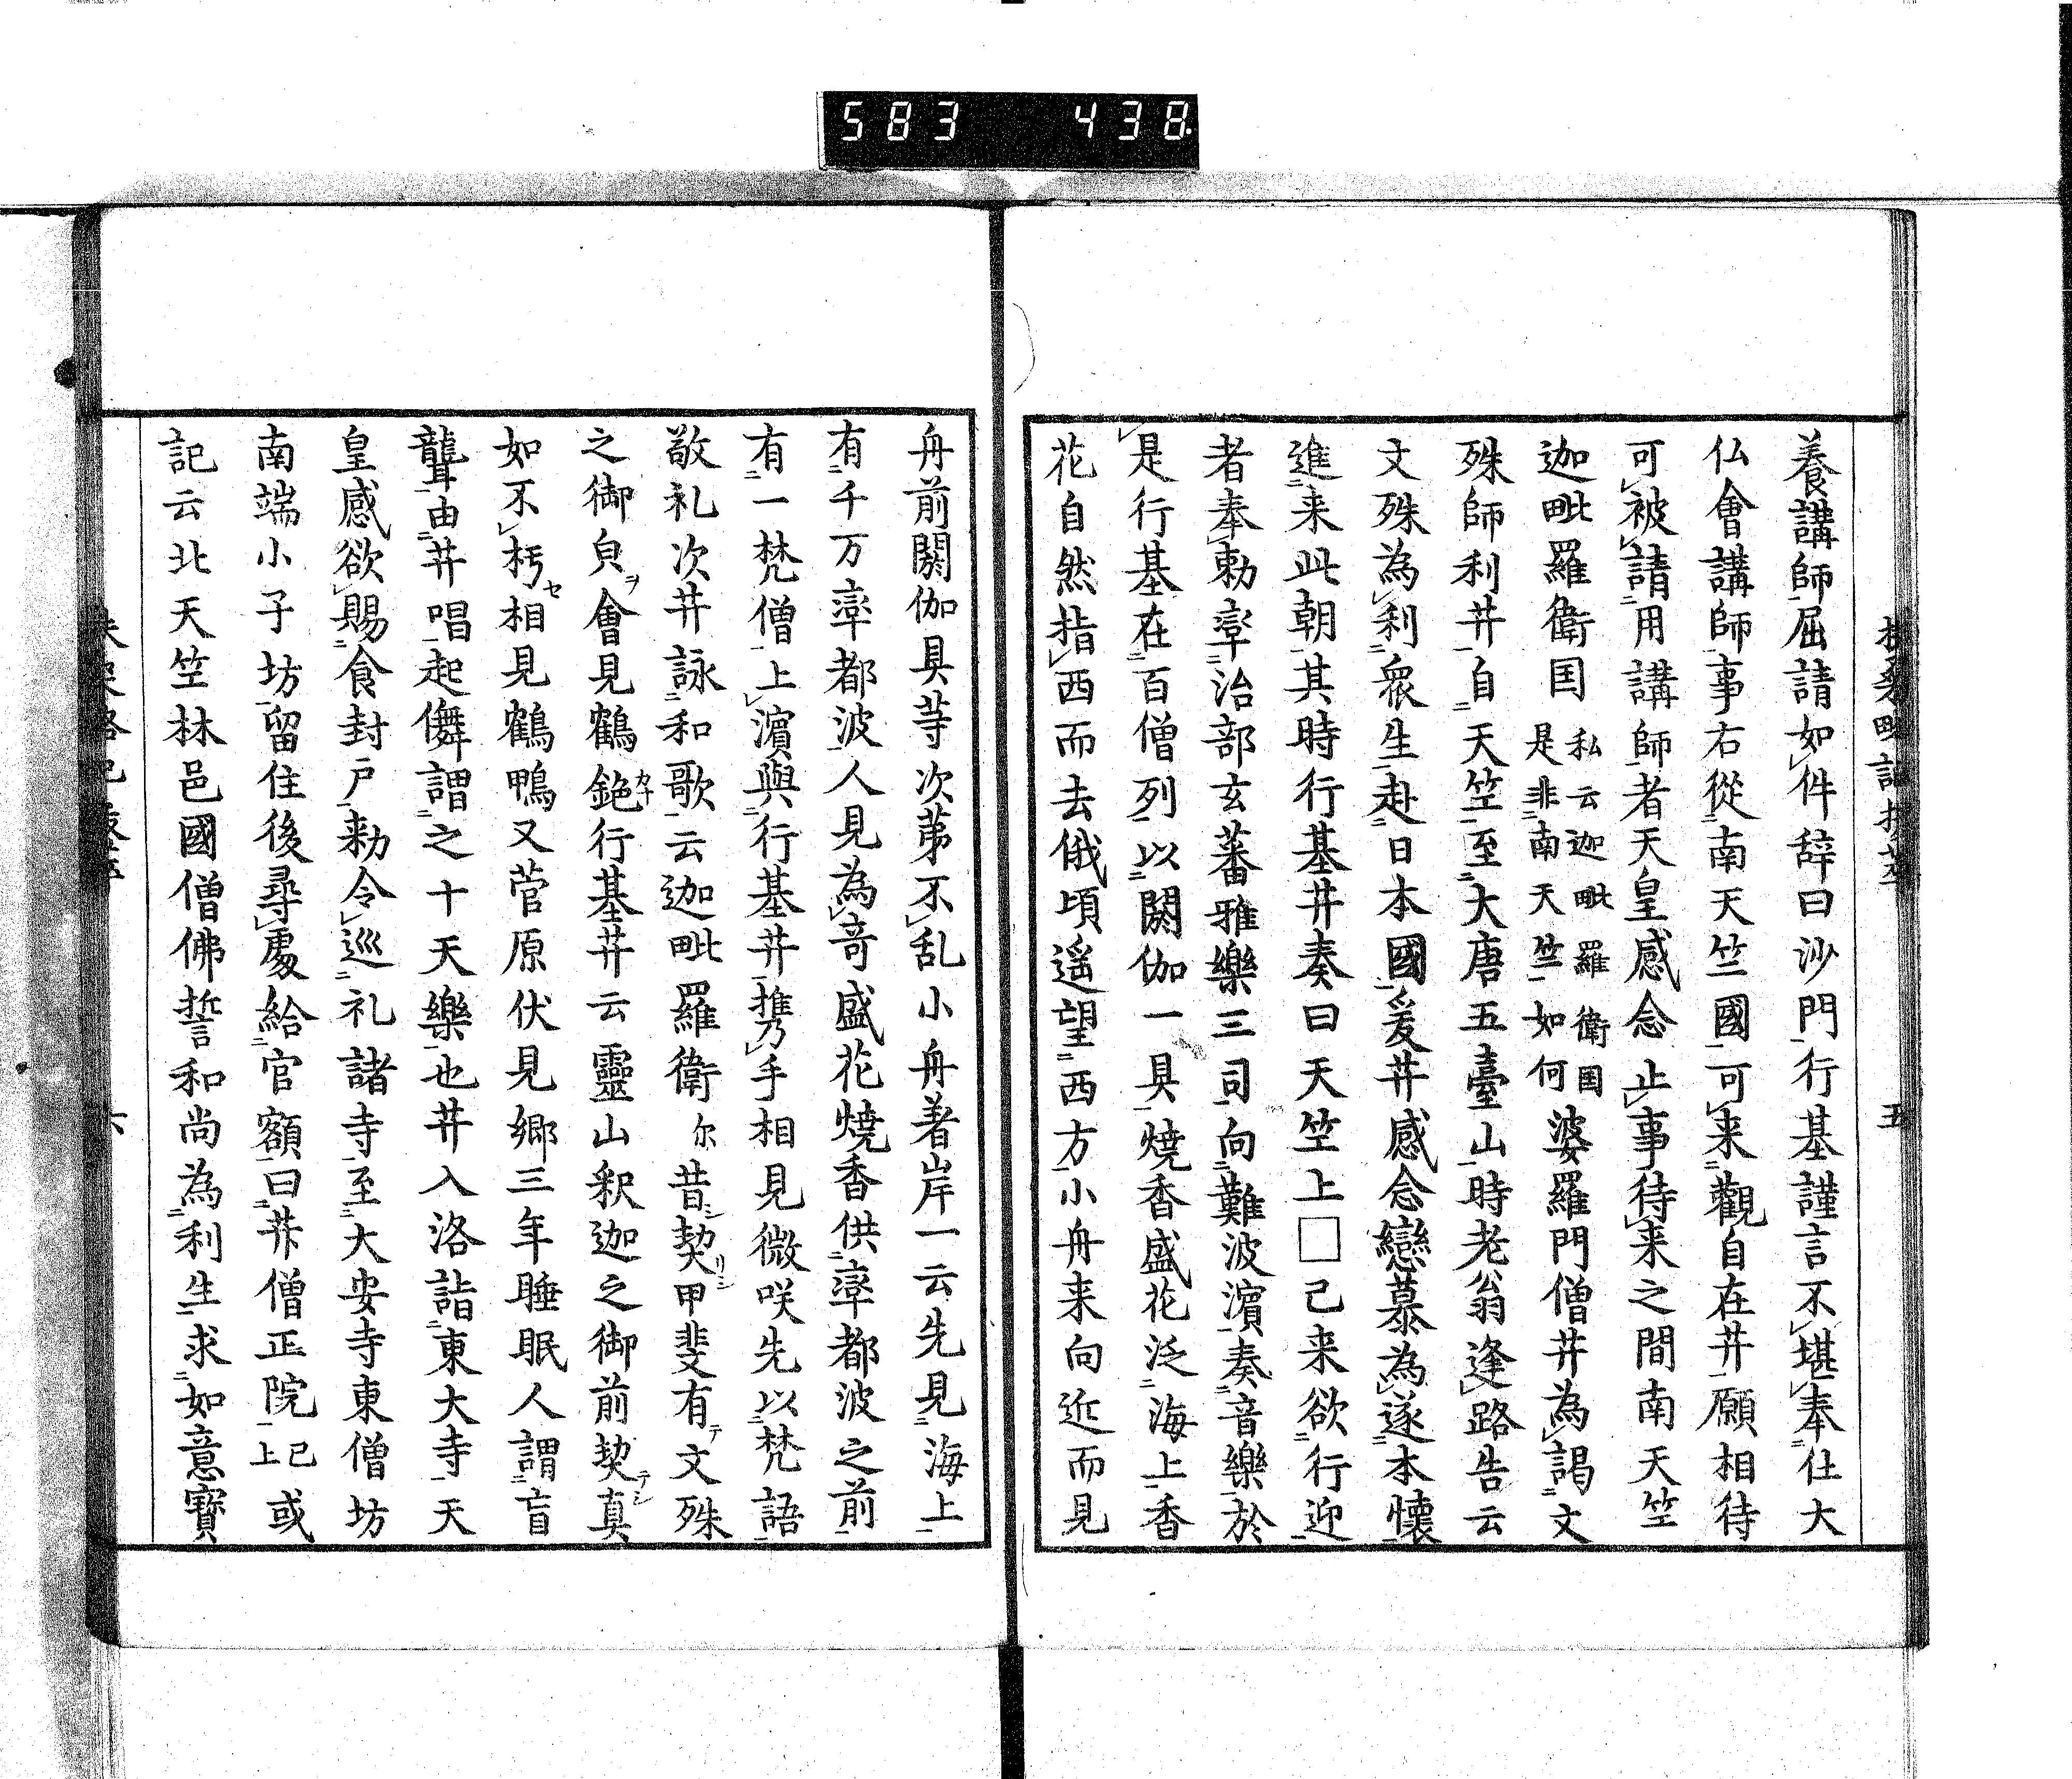 583 438
養講師屈請如件辞曰沙門行基謹言不堪奉仕大
仏會講師事右從南天竺國可来觀自在井願相待
可被請用講師者天皇感念止事待来之間南天竺
迦毗羅衛国私云迦毗羅衛国是非南天竺如何婆羅門僧井為謁文
殊師利井自天竺至大唐五臺山時老翁逢路告云
文殊為利衆生赴日本國爰井感念戀慕為遂本懷
進来此朝其時行基井奏曰天竺上□已来欲行迎
者奉勅率治部玄蕃雅樂三司向難波濱奏音樂於
是行基在百僧列以閼伽一具燒香盛花泛海上香
花自然指西而去俄頃遥望西方小舟来向近而見
五
舟前閼伽具䓁次苐不乱小舟着岸一云先見海上
有千万率都波人見為竒盛花燒香供率都波之前
有一梵僧上濱與行基井携手相見微咲先以梵語
敬礼次井詠和歌云迦毗羅衛尓昔シ契リシ甲斐有テ文殊
之御皃ヲ會見鶴䤄行基井云靈山釈迦之御前契テシ真
如不朽セ相見鶴鴨又菅原伏見郷三年睡眠人謂盲
聾由井唱起儛謂之十天樂也井入洛詣東大寺天
皇感欲賜食封戸勅令巡礼諸寺至大安寺東僧坊
南端小子坊留住後尋處給官額曰井僧正院已上或
記云北天竺林邑國僧佛誓和尚為利生求如意寶
六